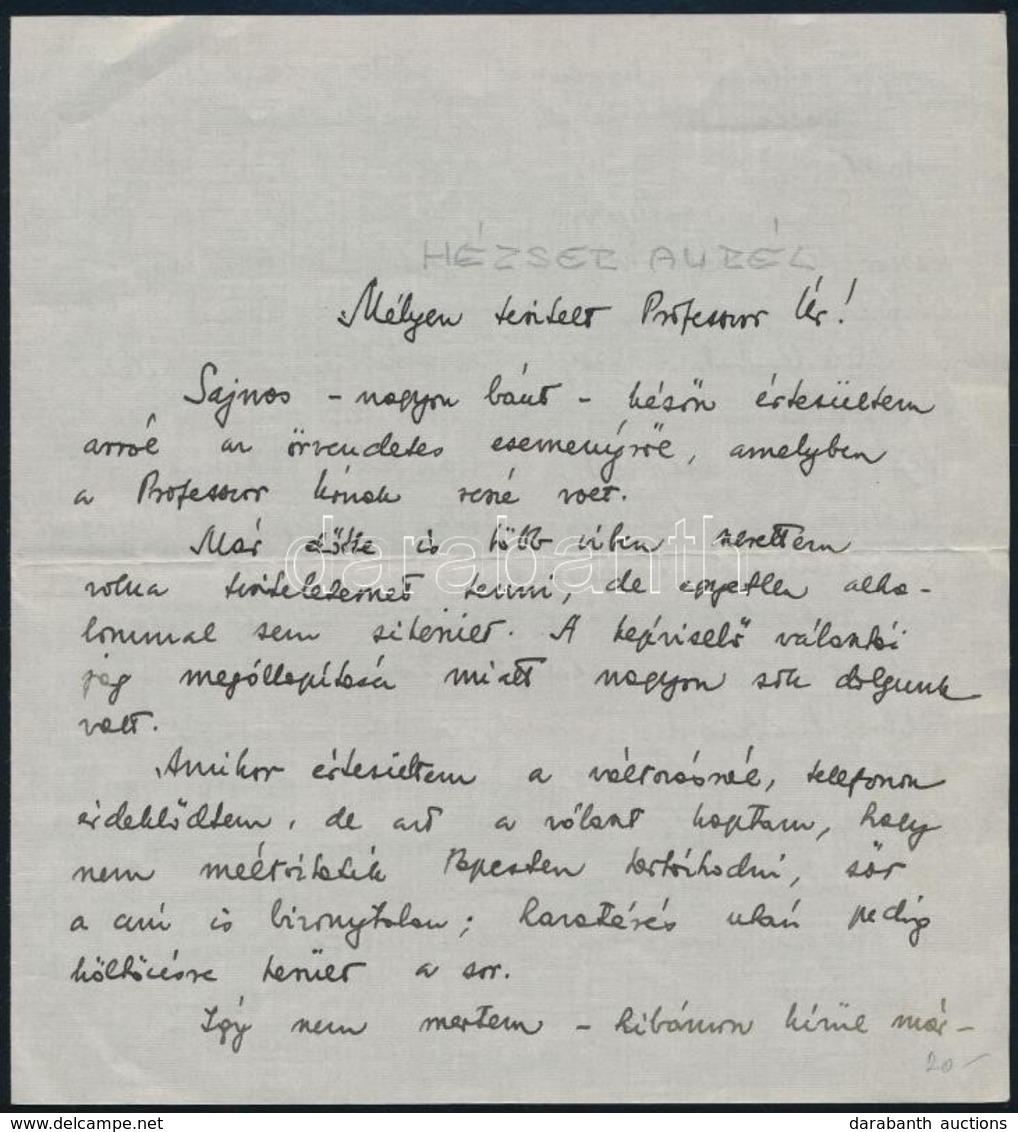 HÉZSER AURÉL
Mélyen tisztelt Professzor Úr!
Sajnos – nagyon bánt – későn értesültem
arról az örvendetes eseményről, amelyben
a Professzor Úrnak része volt.
Már előtte is több ízben szerettem
volna tiszteletemet tenni, de egyetlen alka-
lommal sem sikerült. A képviselő választói
jog megállapítása miatt nagyon sok dolgunk
volt.
Amikor értesültem a változásról, telefonon
érdeklődtem, de azt a választ kaptam, hogy
nem méltóztatik Pesten tartózkodni, sőt
a cím is bizonytalan; hazatérés után pedig
költözésre kerül a sor.
Így nem mertem – hibámon kívül már –
20.–
darabanth
darabanth auctions